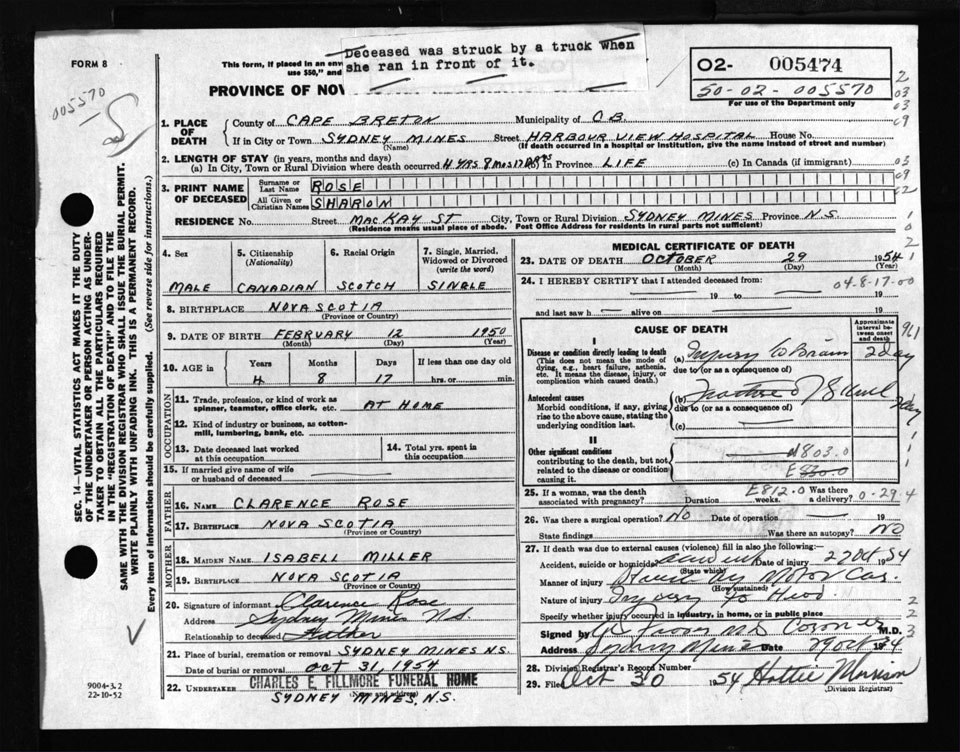 FORM 8
Deceased was struck by a truck when
she ran in front of it.
This form, if placed in an env
use $50," and
PROVINCE OF NOV
O2- 005474
50-02-005570
For use of the Department only
005570
1. PLACE OF DEATH
County of CAPE BRETON Municipality of C.B.
If in City or Town SYDNEY MINES Street HARBOUR VIEW HOSPITAL House No.
(Name) (If death occurred in a hospital or institution, give the name instead of street and number)
2. LENGTH OF STAY (in years, months and days)
(a) In City, Town or Rural Division where death occurred 4 YRS. 8 MOS 17 DAYS (b) In Province LIFE (c) In Canada (if immigrant)
3. PRINT NAME OF DECEASED
Surname or Last Name ROSE
All Given or Christian Names SHARON
RESIDENCE No. Street MACKAY ST City, Town or Rural Division SYDNEY MINES Province N.S.
(Residence means usual place of abode. Post Office Address for residents in rural parts not sufficient)
4. Sex
MALE
5. Citizenship
(Nationality)
CANADIAN
6. Racial Origin
SCOTCH
7. Single, Married, Widowed or Divorced
(write the word)
SINGLE
8. BIRTHPLACE NOVA SCOTIA
(Province or Country)
9. DATE OF BIRTH FEBRUARY 12 1950
(Month) (Day) (Year)
10. AGE in Years Months Days If less than one day old
4 8 17 hrs. or min.
OCCUPATION
11. Trade, profession, or kind of work as
spinner, teamster, office clerk, etc. AT HOME
12. Kind of industry or business, as cotton-
mill, lumbering, bank, etc.
13. Date deceased last worked
at this occupation
14. Total yrs. spent in
this occupation
15. If married give name of wife
or husband of deceased
FATHER
16. NAME CLARENCE ROSE
17. BIRTHPLACE NOVA SCOTIA
(Province or Country)
MOTHER
18. MAIDEN NAME ISABELL MILLER
19. BIRTHPLACE NOVA SCOTIA
(Province or Country)
20. Signature of informant Clarence Rose
Address Sydney Mines N.S.
Relationship to deceased Father
21. Place of burial, cremation or removal SYDNEY MINES N.S.
Date of burial or removal OCT 31, 1954
22. UNDERTAKER CHARLES E. FILLMORE FUNERAL HOME
(Name and address)
SYDNEY MINES, N.S.
MEDICAL CERTIFICATE OF DEATH
23. DATE OF DEATH OCTOBER 29 1954
(Month) (Day) (Year)
24. I HEREBY CERTIFY that I attended deceased from:
04-8-17-00
19 to 19
and last saw h alive on 19
CAUSE OF DEATH
Approximate interval between onset and death
I
Disease or condition directly leading to death
(This does not mean the mode of dying, e.g., heart failure, asthenia, etc. It means the disease, injury, or complication which caused death.)
(a) Injury to Brain 2 day
due to (or as a consequence of)
Antecedent causes
Morbid conditions, if any, giving rise to the above cause, stating the underlying condition last.
(b) Fracture of Skull 2 day
due to (or as a consequence of)
(c)
II
Other significant conditions
contributing to the death, but not related to the disease or condition causing it.
N803.0
E812.0
25. If a woman, was the death associated with pregnancy? Duration weeks. Was there a delivery? 0-29.4
26. Was there a surgical operation? No Date of operation 19
State findings Was there an autopsy? NO
27. If death was due to external causes (violence) fill in also the following:-
Accident, suicide or homicide? Accident Date of injury 27 Oct 1954
(State which)
Manner of injury Struck by Motor Car.
(How sustained)
Nature of injury Injury to Head
Specify whether injury occurred in industry, in home, or in public place
Signed by Coroner M.D.
Address Sydney Mines Date 29 Oct 54
28. Division Registrar's Record Number
29. Filed Oct 30 1954 Hattie
(Division Registrar)
SEC. 14—VITAL STATISTICS ACT MAKES IT THE DUTY
OF THE UNDERTAKER OR PERSON ACTING AS UNDER-
TAKER TO OBTAIN ALL THE PARTICULARS REQUIRED
IN THE "REGISTRATION OF DEATH" AND TO FILE THE
SAME WITH THE DIVISION REGISTRAR WHO SHALL ISSUE THE BURIAL PERMIT.
WRITE PLAINLY WITH UNFADING INK. THIS IS A PERMANENT RECORD.
Every item of information should be carefully supplied. (See reverse side for instructions.)
9004-3.2
22-10-52